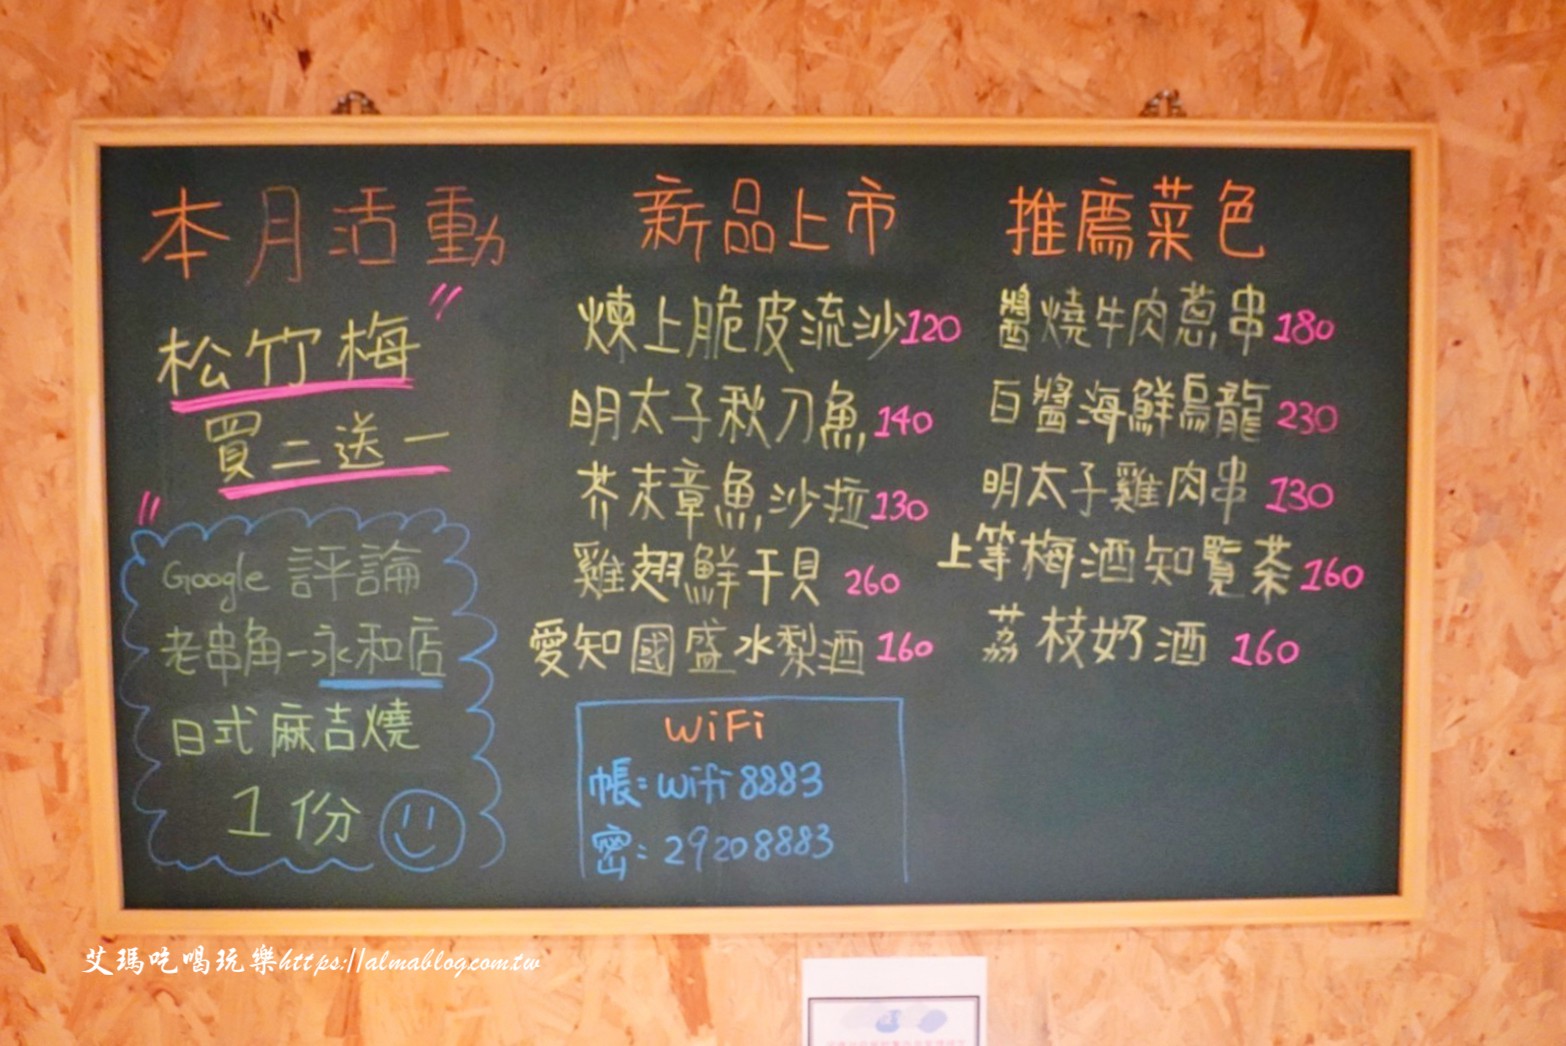 本月活動
松竹梅
買二送一
Google 評論
老串角-永和店
日式麻吉燒
1份
新品上市
煉上脆皮流沙120
明太子秋刀魚140
芥末章魚沙拉130
雞翅鮮干貝 260
愛知國盛水梨酒 160
WiFi
帳: wifi 8883
密: 29208883
推薦菜色
醬燒牛肉蔥串180
白醬海鮮烏龍230
明太子雞肉串130
上等梅酒知覽茶160
荔枝奶酒 160
艾瑪吃喝玩樂https://almablog.com.tw